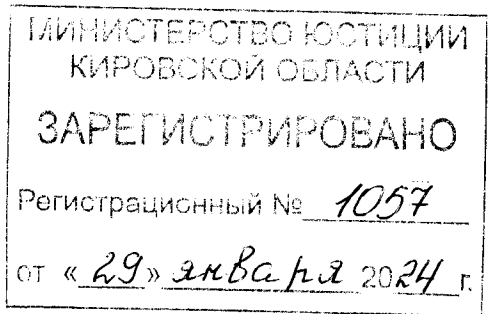 МИНИСТЕРСТВО ЮСТИЦИИ
КИРОВСКОЙ ОБЛАСТИ
ЗАРЕГИСТРИРОВАНО
Регистрационный № 1057
от «29» января 2024 г.